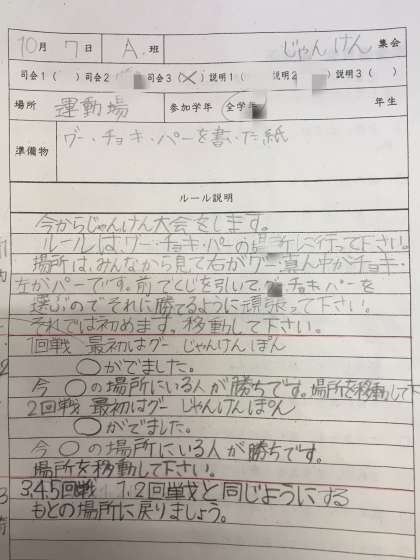 10月 7日 A.班 じゃんけん 集会
司会1( ) 司会2 司会3(×) 説明1( 説明2 説明3( )
場所 運動場 参加学年 全学年 年生
準備物 グー・チョキ・パーを書いた紙
ルール説明
今からじゃんけん大会をします。
ルールは、グー・チョキ・パーの場所に行って下さい。
場所は、みんなから見て右がグー真ん中がチョキ・
左がパーです。前でくじを引いて チョキ パーを
選ぶのでそれに勝てるように頑張って下さい。
それでは初めます。移動して下さい。
1回戦 最初はグー じゃんけんぽん
○がでました。
今○の場所にいる人が勝ちです。場所を移動して下
2回戦 最初はグー じゃんけんぽん
○がでました。
今○の場所にいる人が勝ちです。
場所を移動して下さい。
3,4,5回戦 1,2回戦と同じようにする
もとの場所に戻りましょう。